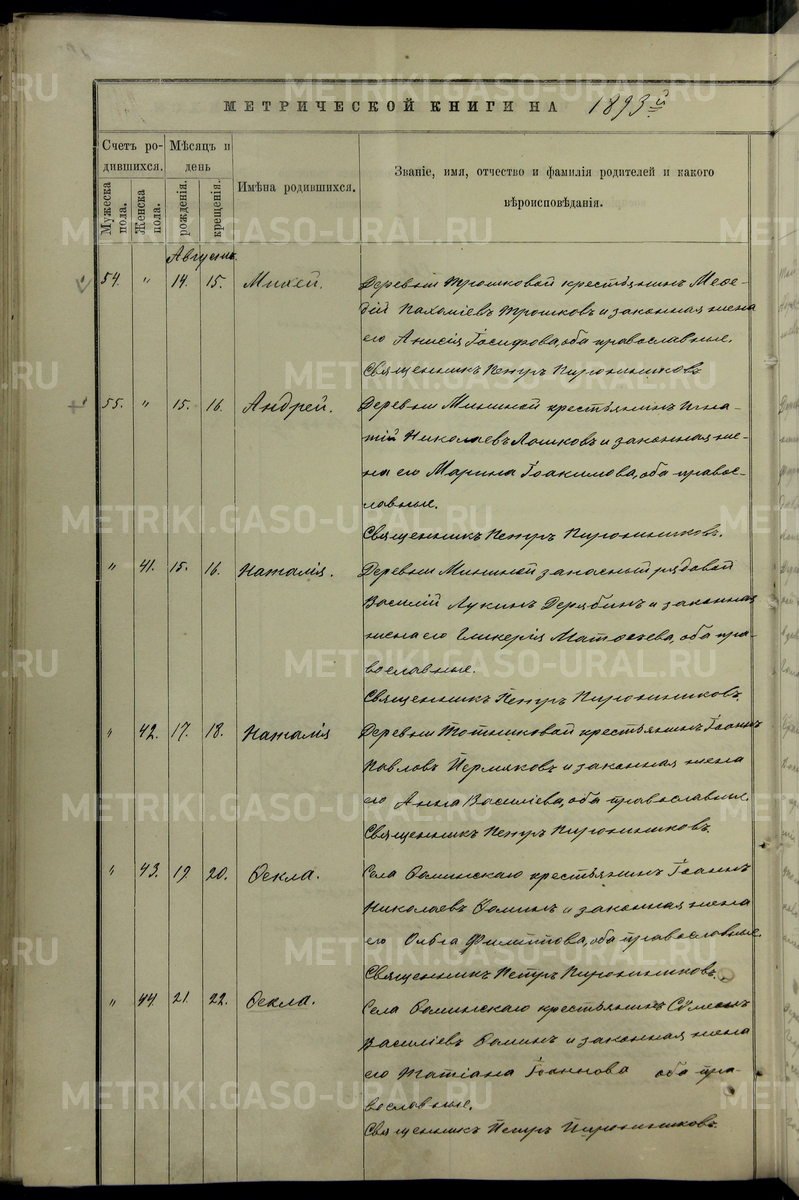 МЕТРИЧЕСКОЙ КНИГИ НА 1893й
Счетъ родившихся.
Мѣсяцъ и день
Имѣна родившихся.
Званіе, имя, отчество и фамилія родителей и какого
вѣроисповѣданія.
Мужеска пола.
Женска пола.
рожденія.
крещенія.
Августъ.
54. " 14. 15. Михей. Деревни Трошковой крестьянинъ Меѳо-
дій Пахоміевъ Трошковъ и законная жена
его Анисія Іосифова, оба православные.
Священникъ Петръ
55. " 15. 16. Андрей. Деревни Мининой крестьянинъ Игна-
тій Николаевъ Лошковъ и законная же-
на его Марина Іоакимова, оба право-
славные.
Священникъ Петръ
" 41. 15. 16. Наталія. Деревни Мининой запасный рядовой
Василій Лукинъ Дерябинъ и законная
жена его Гликерія Матѳеева, оба пра-
вославные.
Священникъ Петръ
" 42. 17. 18. Наталія Деревни крестьянинъ Іоаннъ
Павловъ Пермяковъ и законная жена
его Анна Василіева, оба православные.
Священникъ Петръ
" 43. 19 20. Ѳекла. Села Ѳоминскаго крестьянинъ Іоаннъ
Николаевъ Ѳоминъ и законная жена
его Ольга Филиппова, оба православные.
Священникъ Петръ
" 44. 21. 22. Ѳекла. Села Ѳоминскаго крестьянинъ Сѵмеонъ
Василіевъ Ѳоминъ и законная жена
его Татіана Іоаннова оба пра-
вославные.
Священникъ Петръ
METRIKI.GASO-URAL.RU